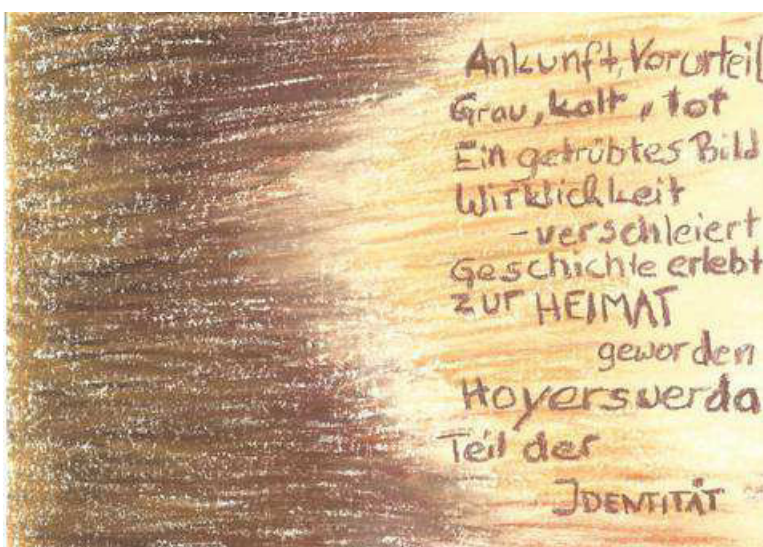 Ankunft, Vorurteil
Grau, kalt, tot
Ein getrübtes Bild
Wirklichkeit
-verschleiert
Geschichte erlebt
zur HEIMAT
geworden
Hoyerswerda
Teil der
IDENTITÄT